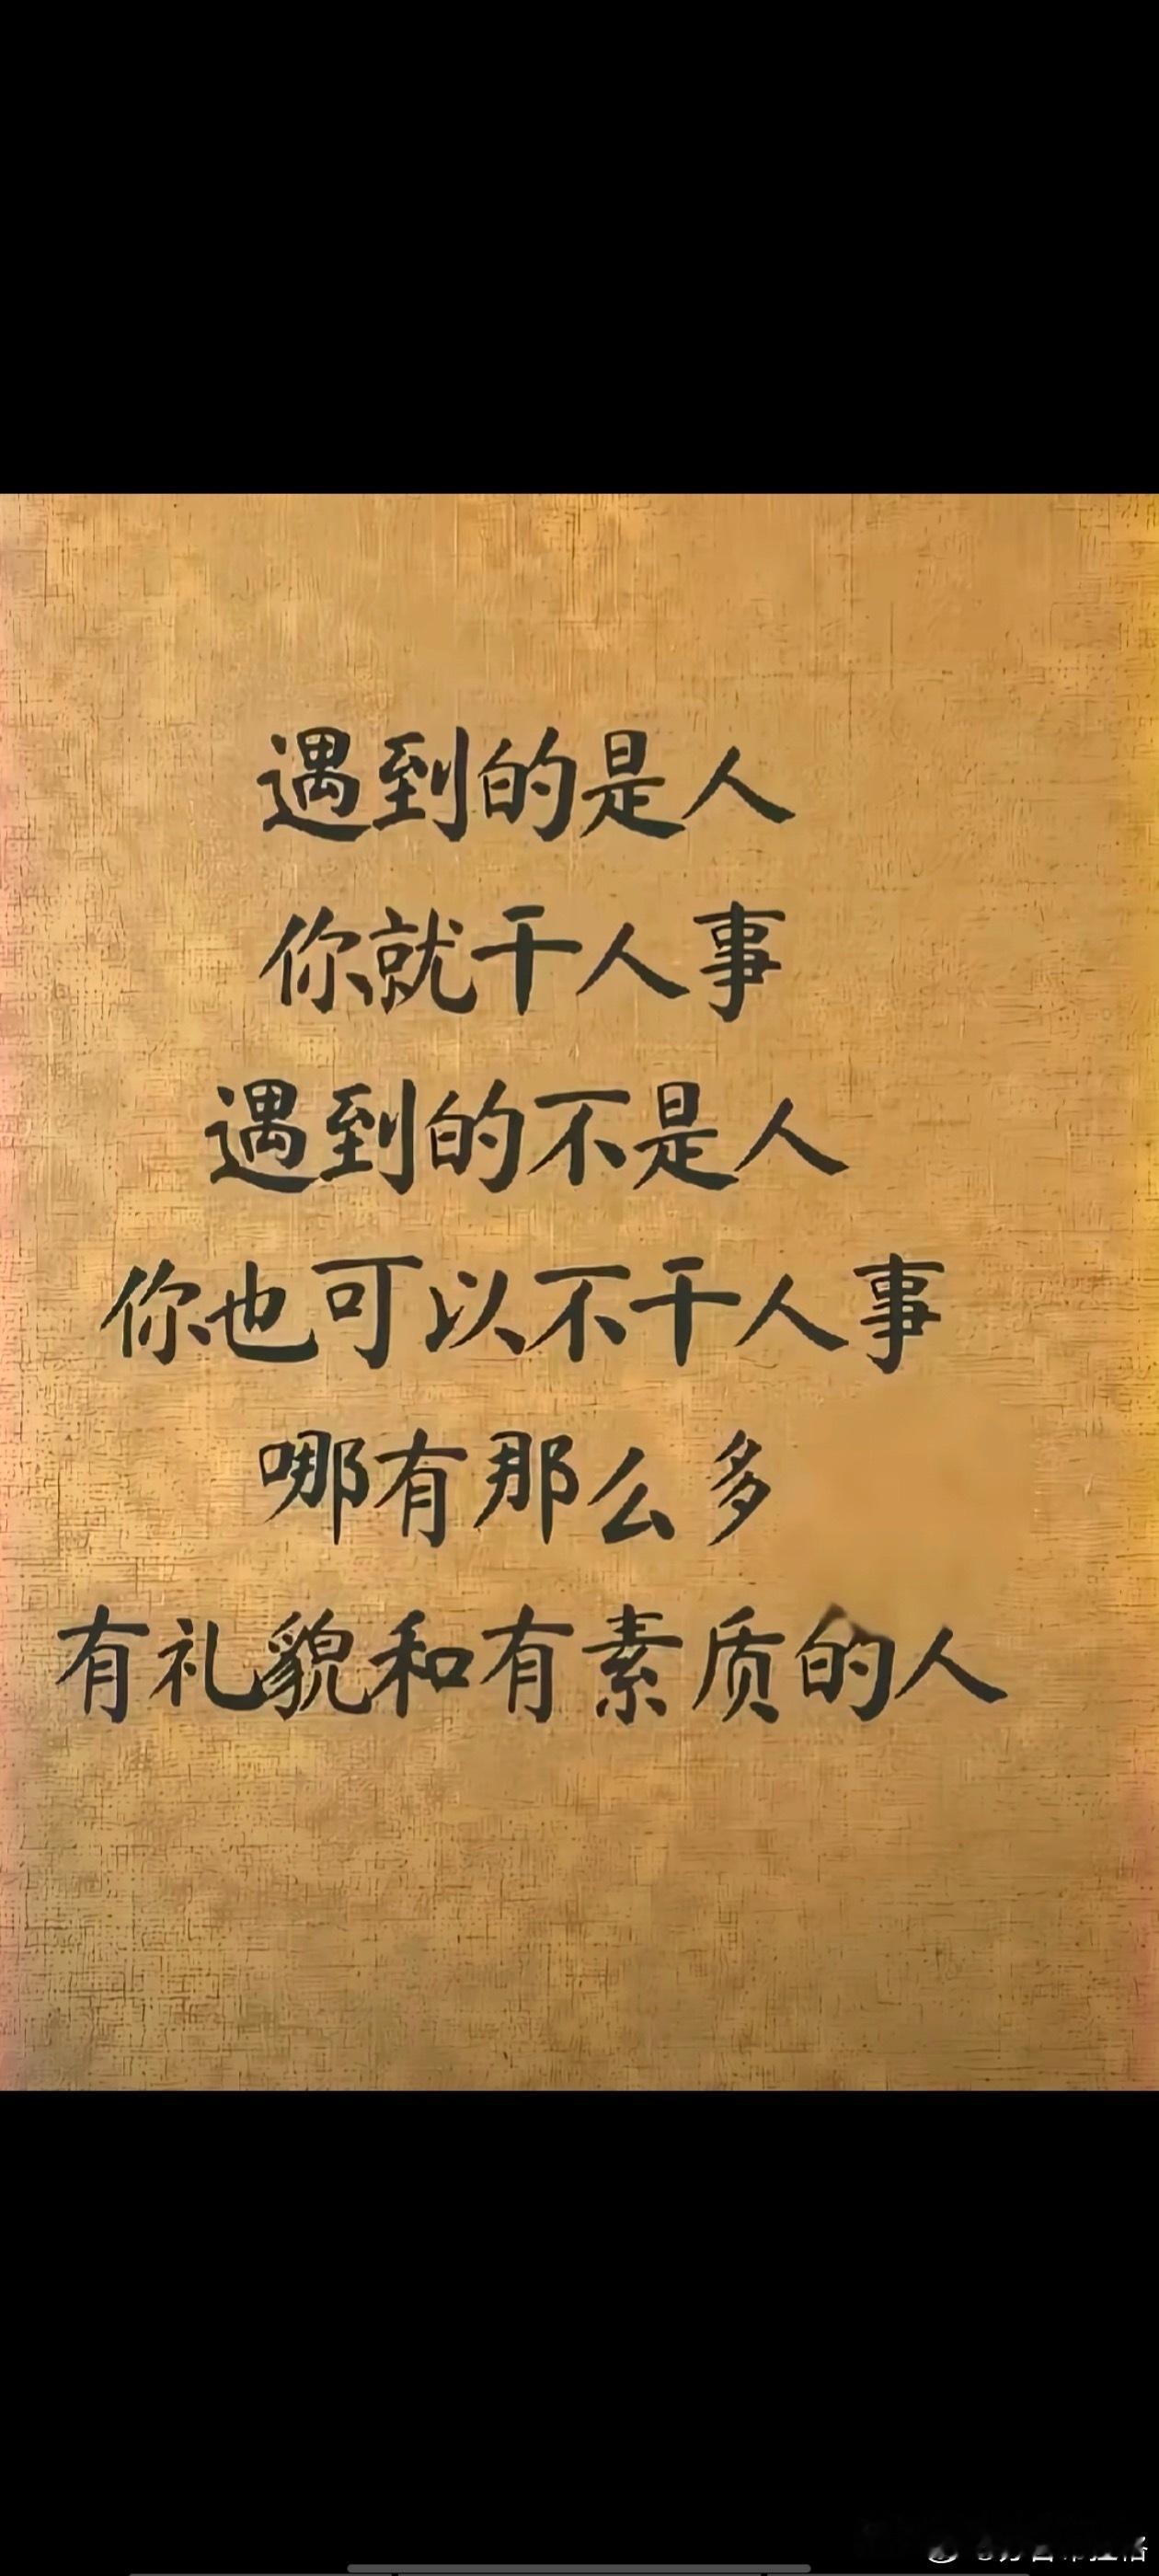 遇到的是人
你就干人事
遇到的不是人
你也可以不干人事
哪有那么多
有礼貌和有素质的人